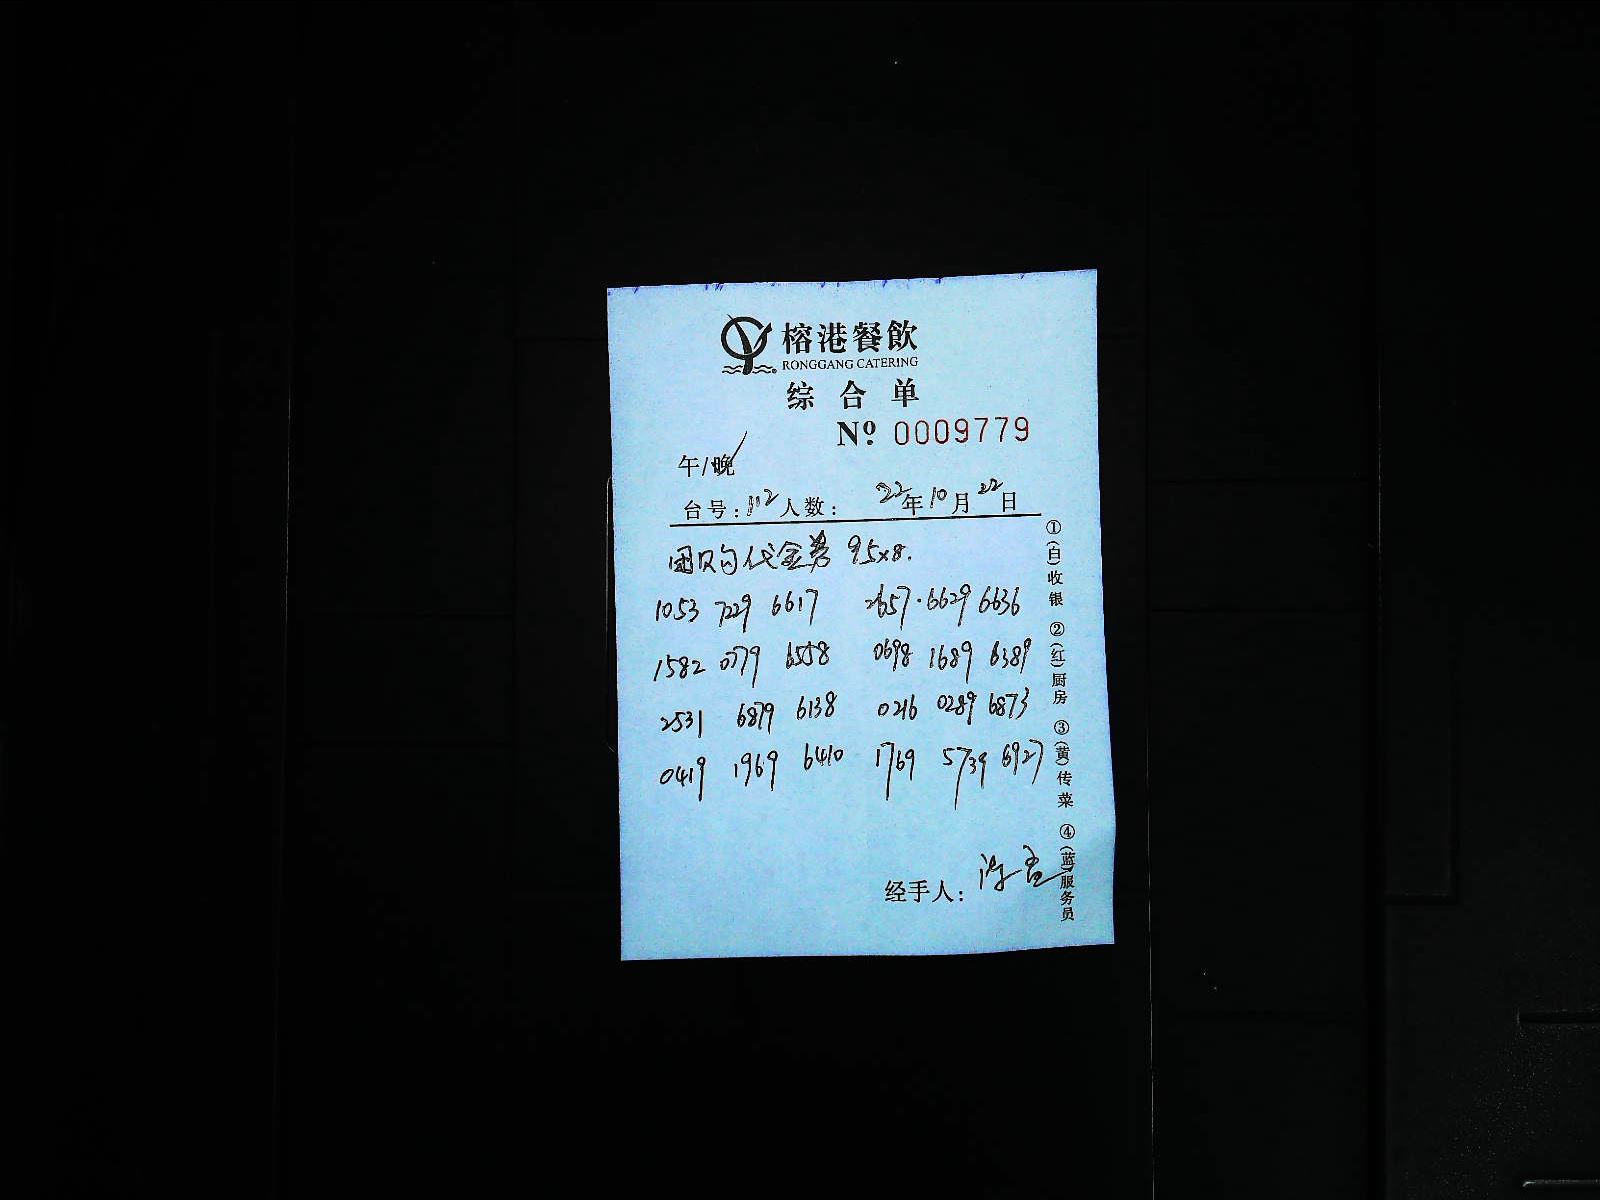 榕港餐飲
RONGGANG CATERING
综合单
Nº 0009779
午/晚
台号:112 人数: 22年10月22日
团购代金券 95×8.
1053 7229 6617 2657·6629 6636
1582 0779 6558 0698 1689 6389
2531 6879 6138 0216 0289 6873
0419 1969 6410 1769 5739 6927
经手人:
①(白)收银 ②(红)厨房 ③(黄)传菜 ④(蓝)服务员